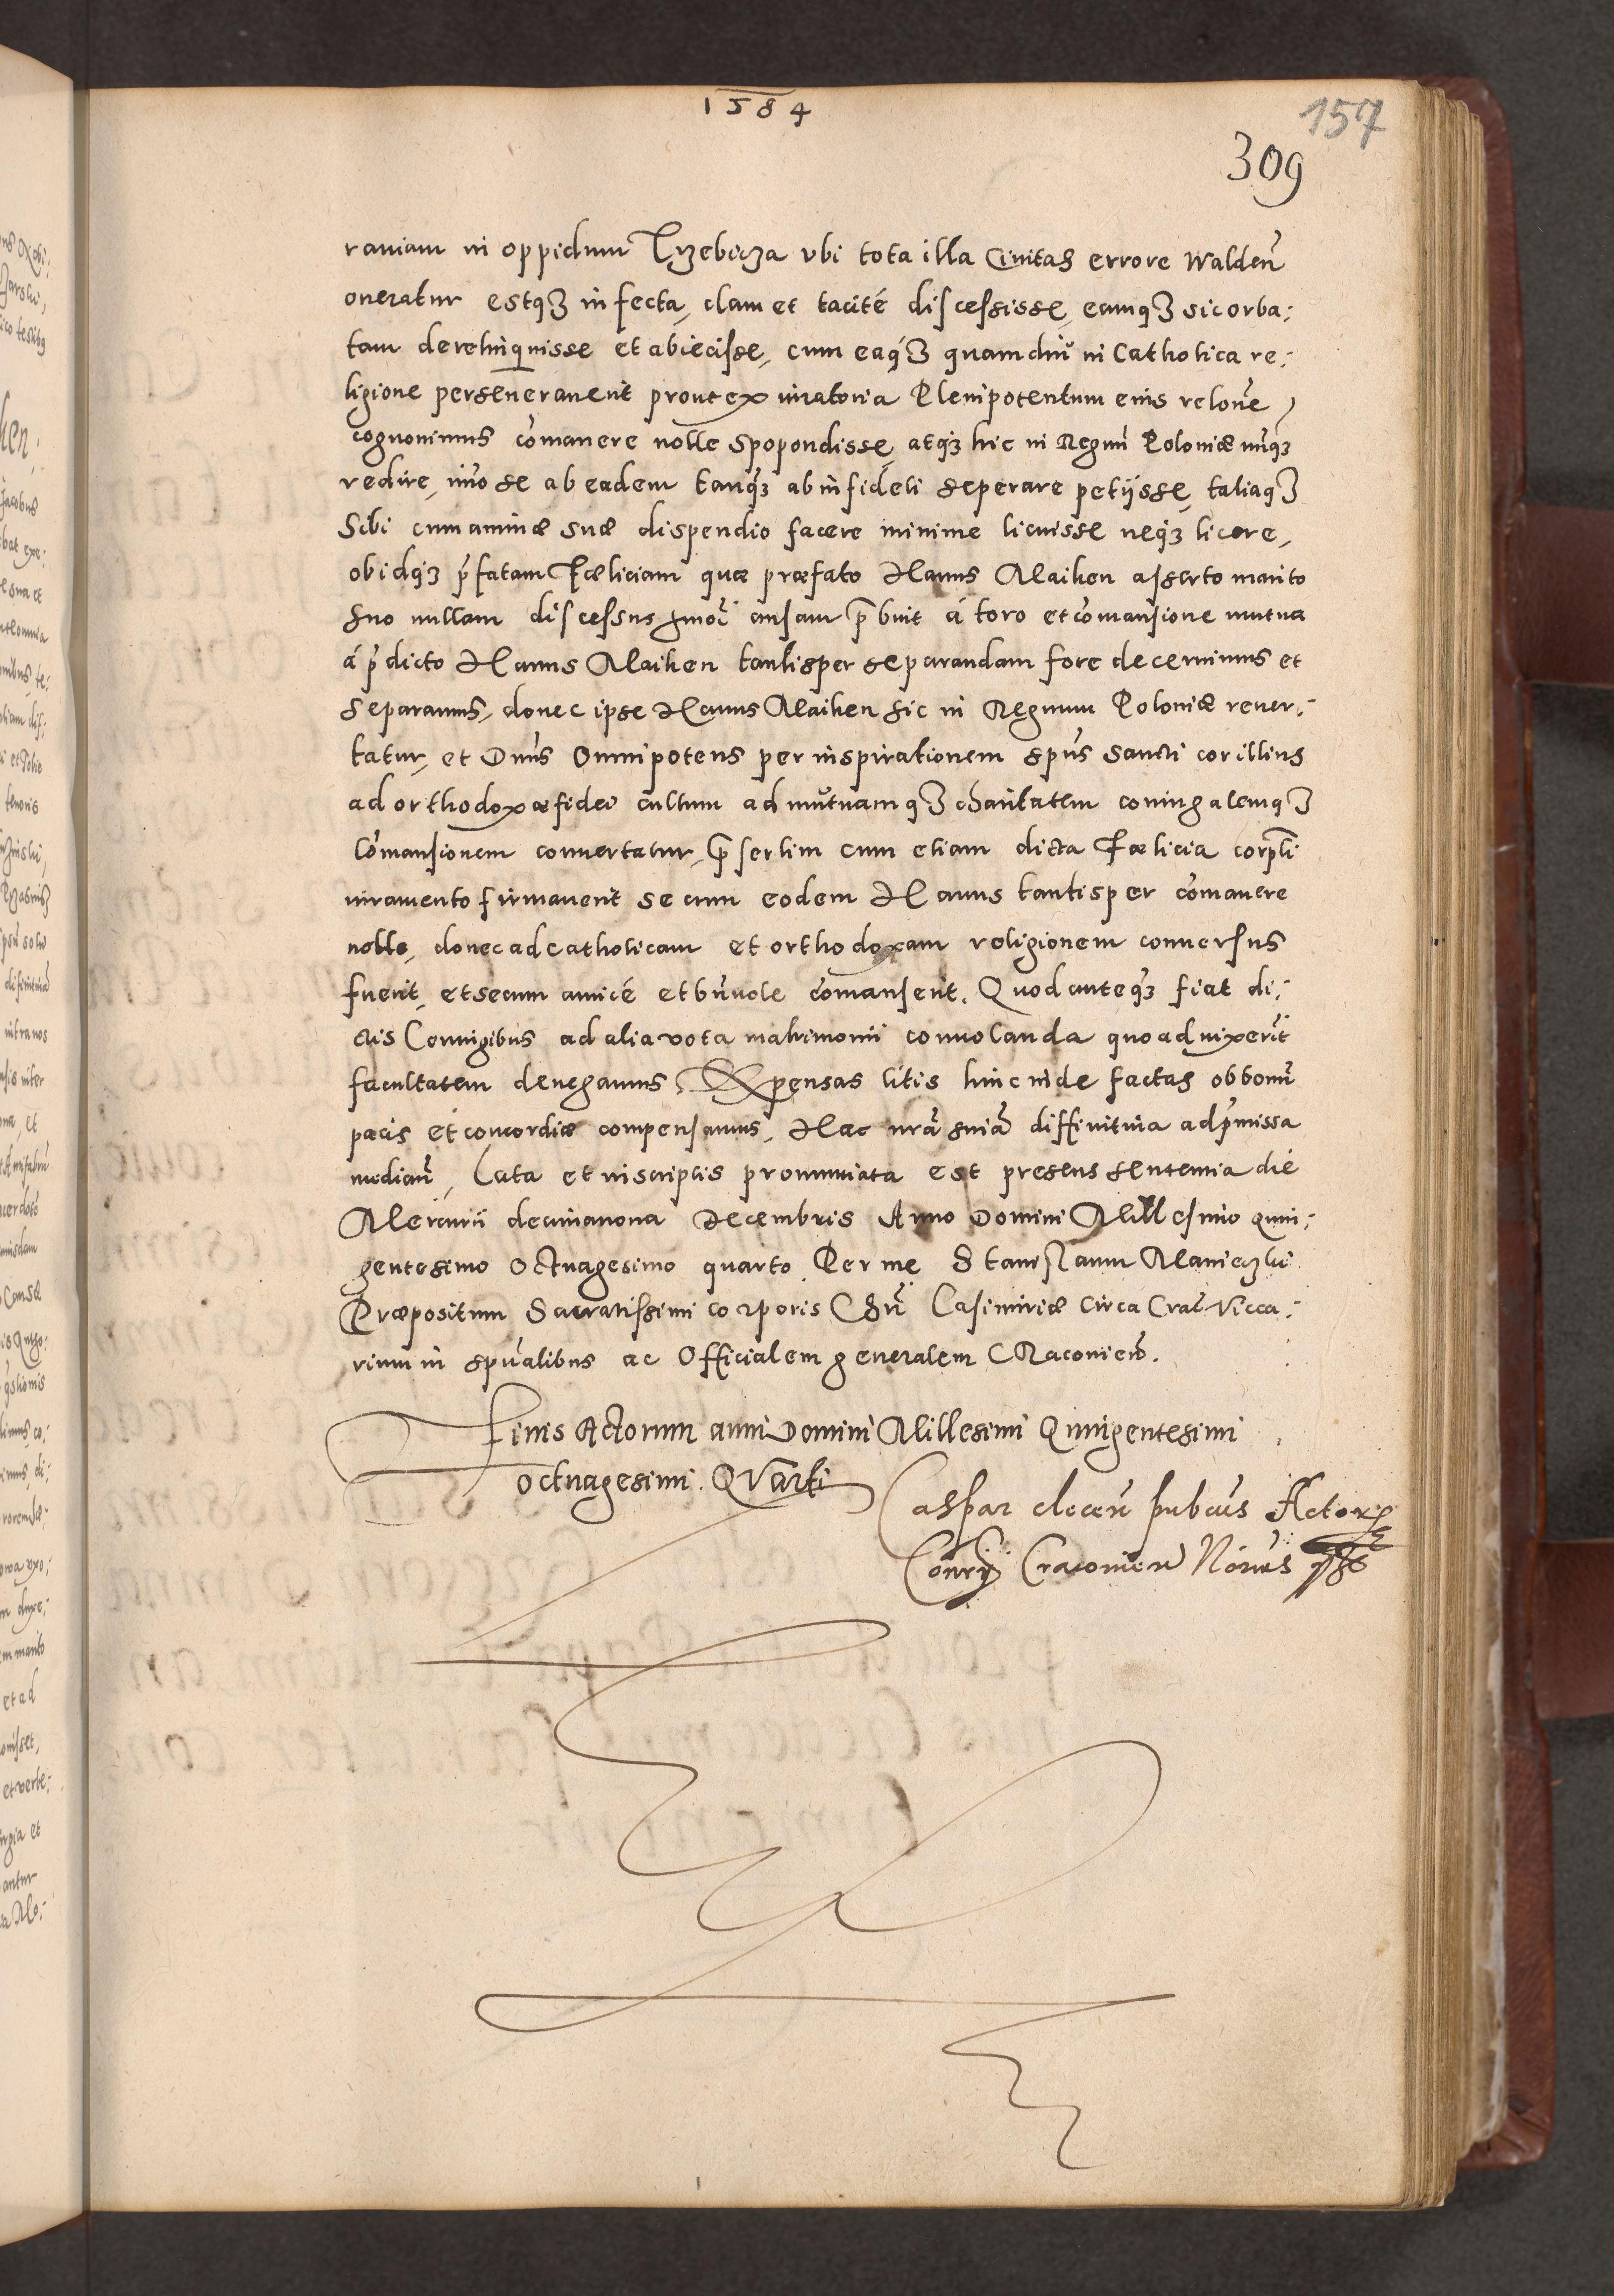 1584
157
309
raviam in oppidum Trzebicza vbi tota illa Ciuitas errore Walden̄
oneratur estqȝ infecta, clam et tacité discessisse, eamqȝ sic orba:
tam derelinquisse et abiecisse, cum eaqȝ quamdiu in Catholica re:
ligione perseuerauerit prout ex iuratoria Plenipotentum eius relōne
cognouimus cōmanere nolle spopondisse, atqȝ hic in Regnū Poloniæ nūqȝ
redire, imo se ab eadem tanqȝ ab infideli seperare petijsse, taliaqȝ
Sibi cum animæ suæ dispendio facere minime licuisse neqȝ licere,
ob idqȝ p̄fatam Fæliciam quæ præfato Hanus Maiken asserto marito
suo nullam discessus hmōi ansam p̄buit á toro et cōmansione mutua
á p̄dicto Hanus Maiken tantisper separandam fore decernimus et
separamus, donec ipse Hanus Maiken hic in Regnum Poloniæ reuer:
tatur, et Dn̄s Omnipotens per inspirationem sp̄us Sancti cor illius
ad orthodoxæ fidei cultum ad mutuamqȝ charitatem coniugalemqȝ
Cōmansionem conuertatur, p̄sertim cum etiam dicta Fælicia corp̄li
iuramento firmauerit se cum eodem Hanus tantisper cōmanere
nolle, donec ad catholicam et orthodoxam religionem conuersus
fuerit, et secum amicé et bn̄uole cōmanserit. Quod anteqȝ fiat di:
ctis Coniugibus ad alia vota matrimonii conuolanda quoad vixerīt
facultatem denegamus, Expensas litis hinc inde factas ob bonū
pacis et concordiæ compensamus, Hac nr̄a sn̄ia diffinitiua ad p̄missa
median̄, Lata et in scriptis pronuntiata est presens sententia die
Mercurii decimanona Decembris Anno Domini Millesimo quin:
gentesimo Octuagesimo quarto. Per me Stanislaum Manieczki
Præpositum Sacratissimi corporis Chri Casimiriæ circa Crac Vicca:
rium in spūalibus ac Officialem generalem CRacouien̄.
Finis Actorum anni Domini Millesimi Quingentesimi
Octuagesimi. QVarti
Caspar publcus Actor
Cracouien̄ Norius